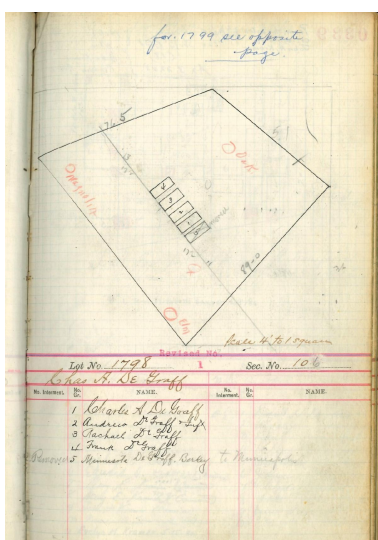 for 1799 see opposite
page.
Oak
Magnolia
4
3
2
1
8900
Elm
Scale 4' to 1 square
Revised No.
Lot No. 1798 1 Sec. No. 106
Chas A. De Graff
No. Interment. No. Gr. NAME. No. Interment. No. Gr. NAME.
1 Charles A De Graff
2 Andrew De Graff
3 Rachael De Graff
4 Frank De Graff
Removed 5 Minnesota De Graff. Body to Minneapolis